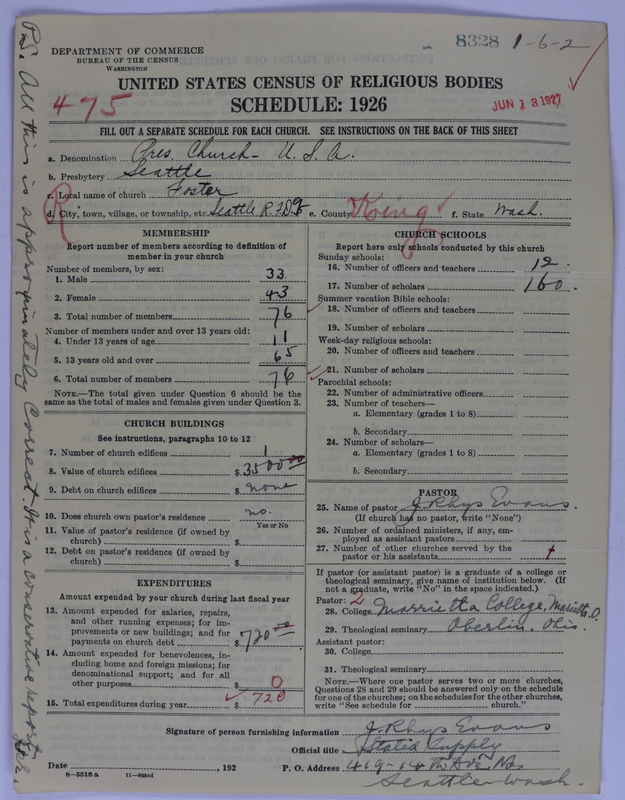 8328 1-6-2
DEPARTMENT OF COMMERCE
BUREAU OF THE CENSUS
WASHINGTON
UNITED STATES CENSUS OF RELIGIOUS BODIES
475
SCHEDULE: 1926
JUN 18 1927
FILL OUT A SEPARATE SCHEDULE FOR EACH CHURCH. SEE INSTRUCTIONS ON THE BACK OF THIS SHEET
a. Denomination Pres. Church - U.S.A.
b. Presbytery Seattle
c. Local name of church Foster
R
d. City, town, village, or township, etc. Seattle R.F.D. e. County King f. State Wash.
MEMBERSHIP
Report number of members according to definition of
member in your church
Number of members, by sex:
1. Male 33
2. Female 43
3. Total number of members 76
Number of members under and over 13 years old:
4. Under 13 years of age 11
5. 13 years old and over 65
6. Total number of members 76
NOTE.—The total given under Question 6 should be
same as the total of males and females given under Question 3.
CHURCH BUILDINGS
See instructions, paragraphs 10 to 12
7. Number of church edifices 1
8. Value of church edifices $ 3500.00
9. Debt on church edifices $ none
10. Does church own pastor's residence no.
Yes or No
11. Value of pastor's residence (if owned by
church) $
12. Debt on pastor's residence (if owned by
church) $
EXPENDITURES
Amount expended by your church during last fiscal year
13. Amount expended for salaries, repairs,
and other running expenses; for im-
provements or new buildings; and for
payments on church debt $ 720.00
14. Amount expended for benevolences, in-
cluding home and foreign missions; for
denominational support; and for all
other purposes $ 0
15. Total expenditures during year $ 720
CHURCH SCHOOLS
Report here only schools conducted by this church
Sunday schools:
16. Number of officers and teachers 12
17. Number of scholars 160
Summer vacation Bible schools:
18. Number of officers and teachers
19. Number of scholars
Week-day religious schools:
20. Number of officers and teachers
21. Number of scholars
Parochial schools:
22. Number of administrative officers
23. Number of teachers—
a. Elementary (grades 1 to 8)
b. Secondary
24. Number of scholars—
a. Elementary (grades 1 to 8)
b. Secondary
PASTOR
25. Name of pastor J. Rhys Evans.
(If church has no pastor, write "None")
26. Number of ordained ministers, if any, em-
ployed as assistant pastors
27. Number of other churches served by the
pastor or his assistants
If pastor (or assistant pastor) is a graduate of a college or
theological seminary, give name of institution below. (If
not a graduate, write "No" in the space indicated.)
Pastor: 2
28. College Marrietta College, Marietta O.
29. Theological seminary Oberlin, Ohio.
Assistant pastor:
30. College
31. Theological seminary
NOTE.—Where one pastor serves two or more churches,
Questions 28 and 29 should be answered only on the schedule
for one of the churches; on the schedules for the other churches,
write "See schedule for church."
Signature of person furnishing information J Rhys Evans
Official title Stated Supply
Date , 192 P. O. Address 419-14th Ave. No.
Seattle Wash.
8—5518a 11—9864d
P.S. All this is approximately Correct. It is a conservative report